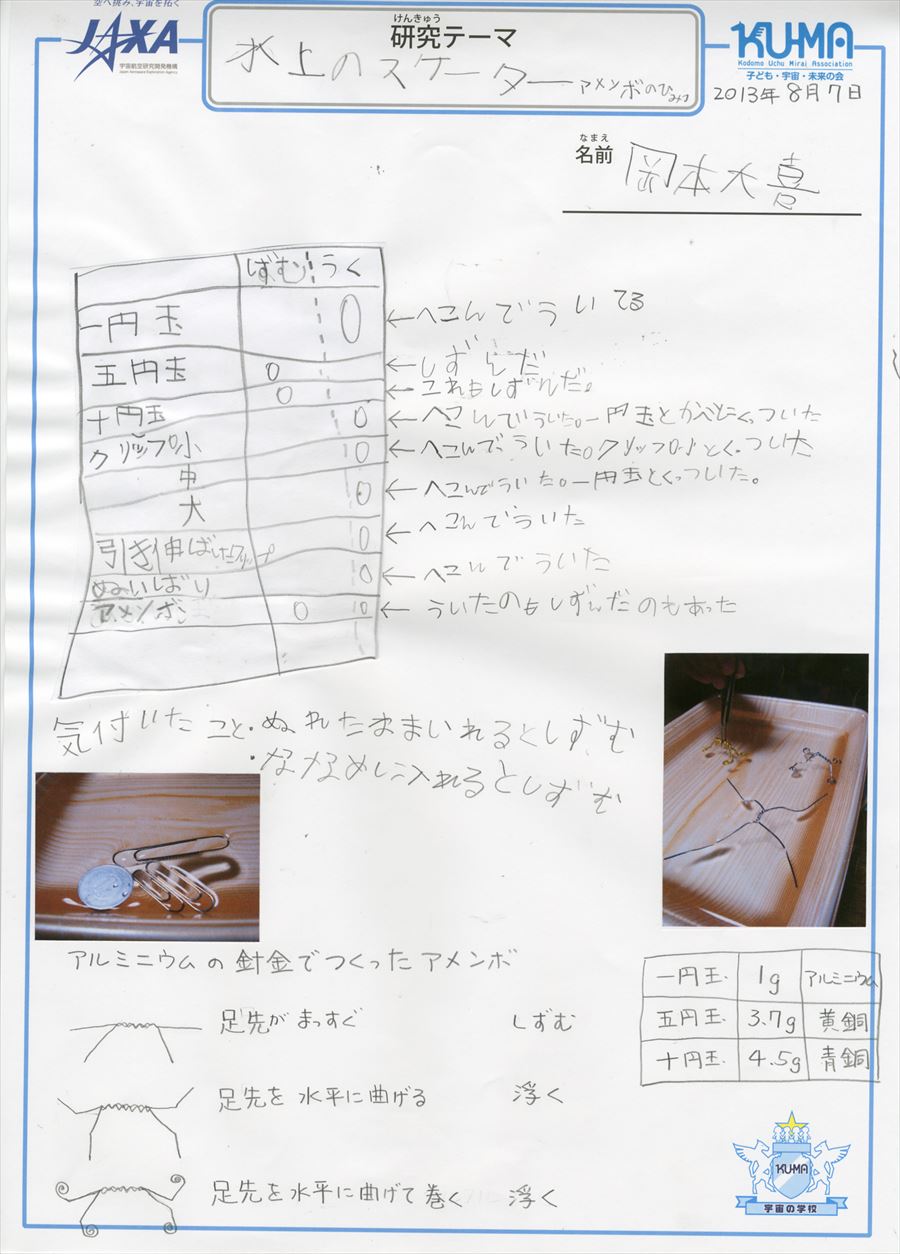 空へ挑み、宇宙を拓く
JAXA
宇宙航空研究開発機構
Japan Aerospace Exploration Agency
けんきゅう
研究テーマ
水上のスケーター アメンボのひみつ
KU-MA
Kodomo Uchu Mirai Association
子ども・宇宙・未来の会
2013年8月7日
なまえ
名前 岡本大喜
しずむ うく
一円玉 ○ ←へこんでういてる
五円玉 ○ ←しずんだ
○ ←これもしずんだ。
十円玉 ○ ←へこんでういた。一円玉とかべとくっついた
クリップ小 ○ ←へこんでういた。クリップ小とくっついた
中 ○ ←へこんでういた。一円玉とくっついた。
大
←へこんでういた
引き伸ばしたクリップ ○
ぬいばり ○ ←へこんでういた
アメンボ ○ ○ ←ういたのもしずんだのもあった
気付いたこと・ぬれたままいれるとしずむ
・ななめに入れるとしずむ
アルミニウムの針金でつくったアメンボ
足先がまっすぐ しずむ
足先を水平に曲げる 浮く
足先を水平に曲げて巻く 浮く
一円玉 1g アルミニウム
五円玉 3.7g 黄銅
十円玉 4.5g 青銅
KUMA
宇宙の学校